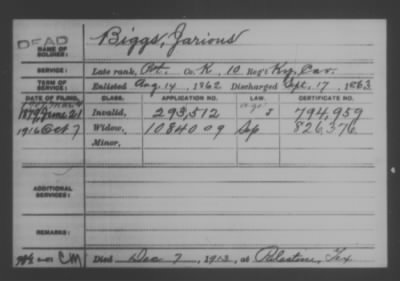 DEAD
NAME OF SOLDIER: Biggs, Jarious
SERVICE: Late rank, Pvt. Co. K, 10 Reg't Ky. Cav.
TERM OF SERVICE: Enlisted Aug. 14, 1862 Discharged Sept. 17, 1863
DATE OF FILING. CLASS. APPLICATION NO. LAW. CERTIFICATE NO.
1879 June 21 Invalid, 293,512 J 794,959
1916 Oct 7 Widow, 1084009 Sep 826,376
Minor,
ADDITIONAL SERVICES:
REMARKS:
CM Died Dec 7, 1913, at Palestine, Tex